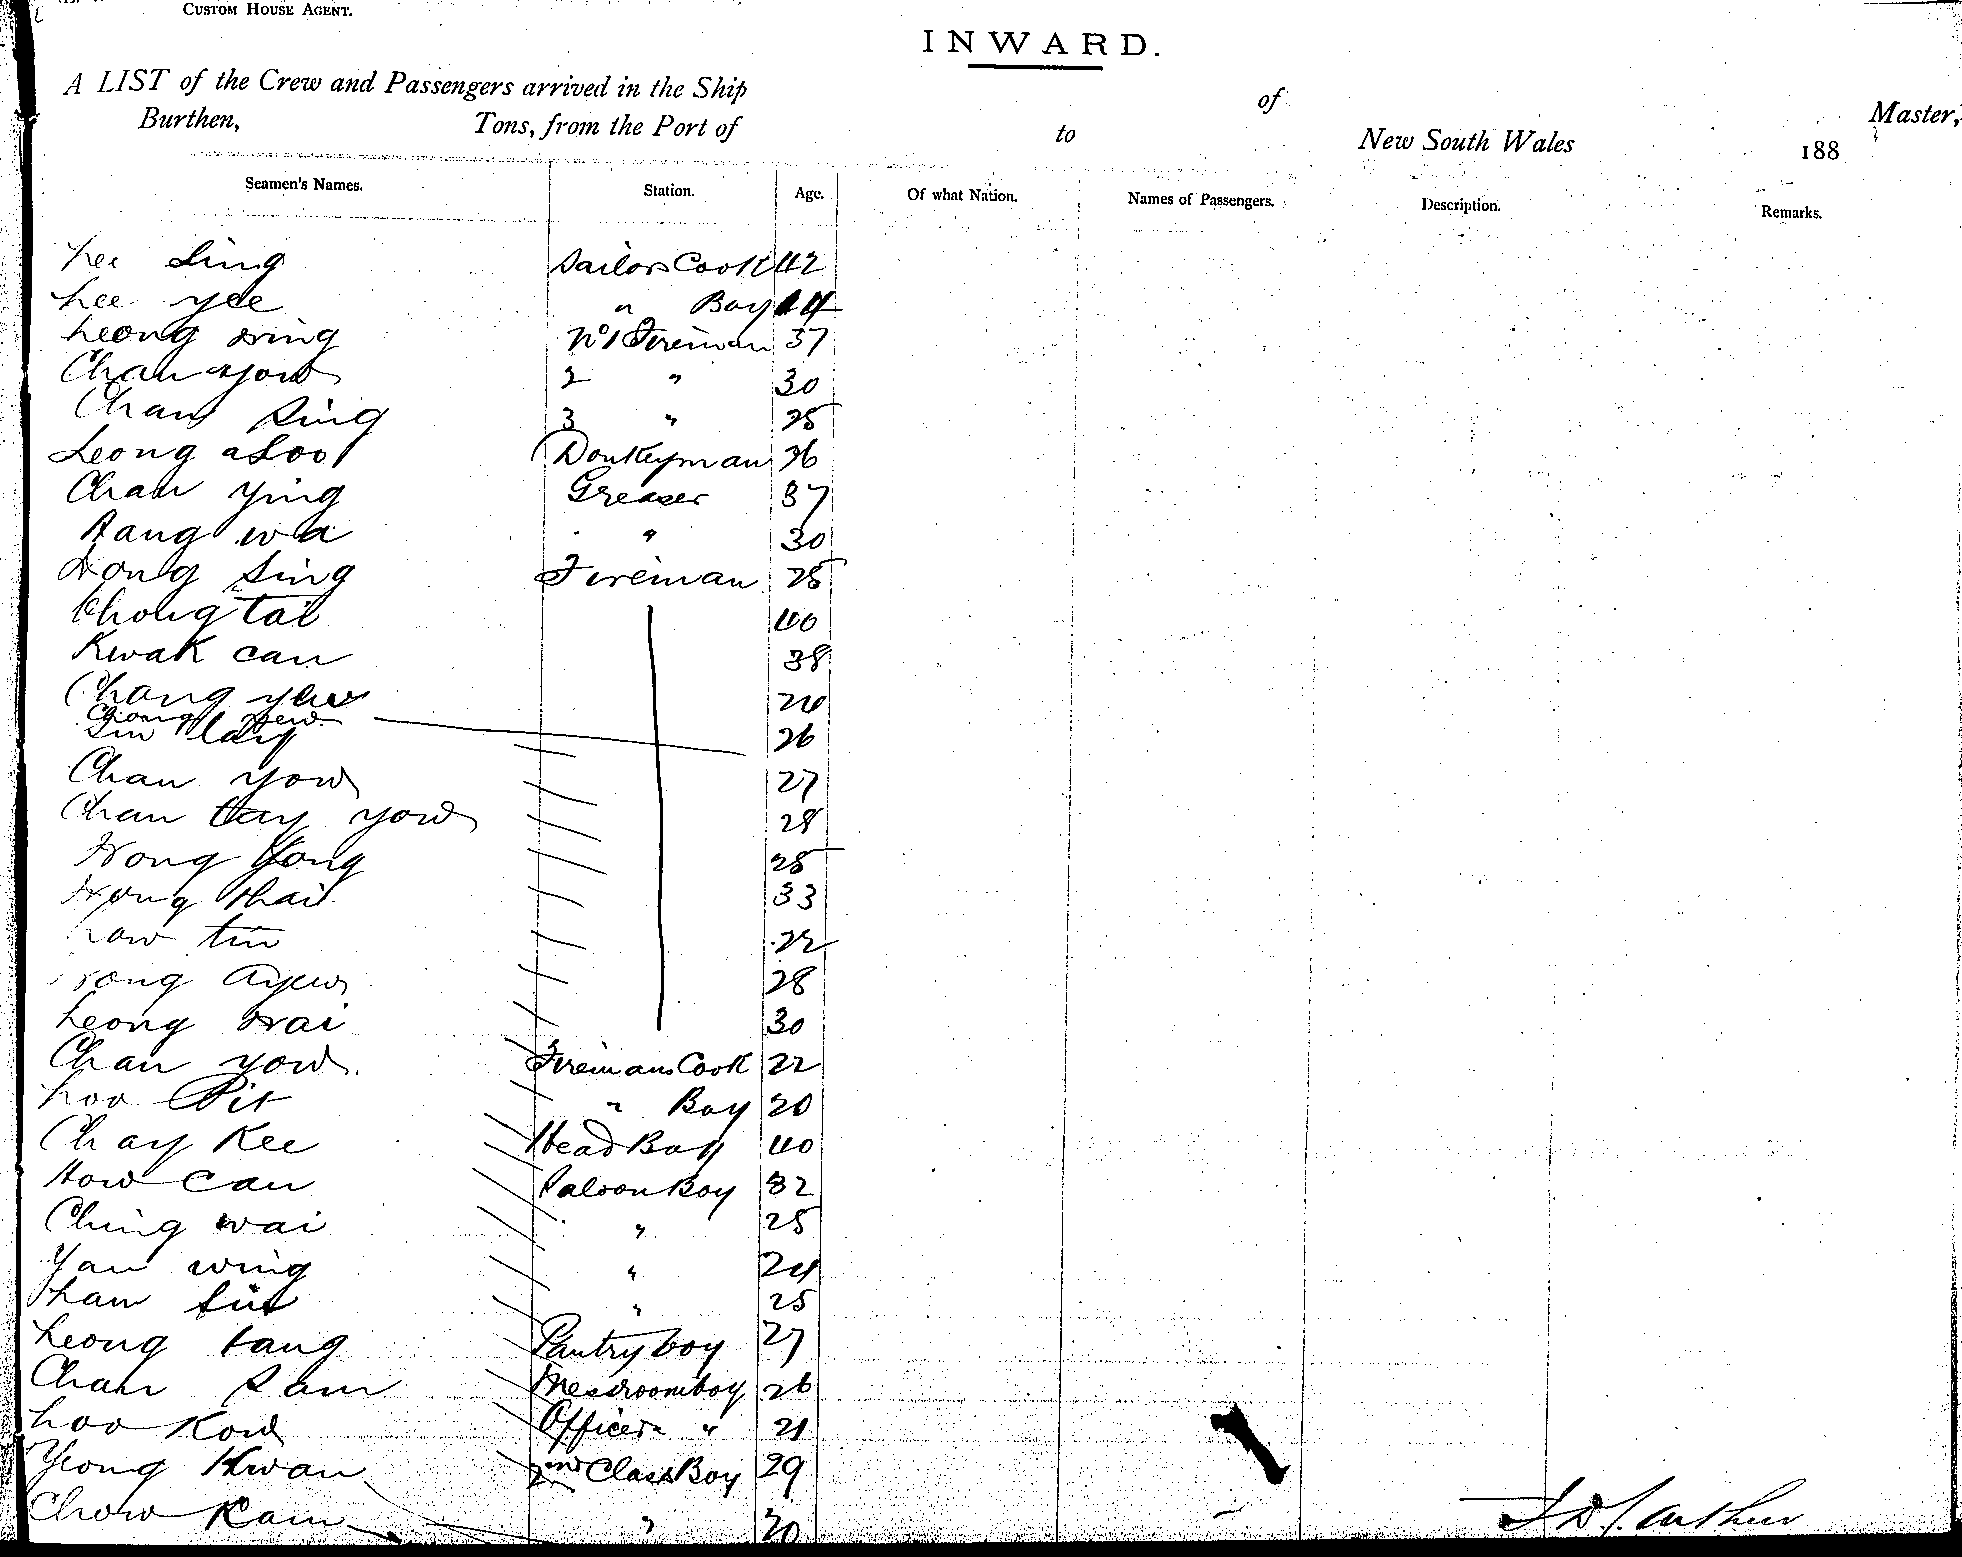 CUSTOM HOUSE AGENT.
INWARD.
A LIST of the Crew and Passengers arrived in the Ship of Master,
Burthen, Tons, from the Port of to New South Wales 188
Seamen's Names. Station. Age. Of what Nation. Names of Passengers. Description. Remarks.
Lee Sing Sailors Cook 42
Lee yee " Boy 14
Leong wing No 1 Fireman 37
Chan yow 2 " 30
Chan Sing 3 " 25
Leong aloo Donkeyman 36
Chan Ying Greaser 37
Hang wa " 30
Wong Sing Fireman 25
Chong tai 40
Kwak can 38
Chong yew 24
Chong yew
Sin 26
Chan yow 27
Chan tay yow 28
Wong Yong 25
Wong thai 33
Low tin 22
Wong Ayew 28
Leong wai 30
Chan yow. Firemans Cook 22
Loo Pit " Boy 20
Chay Kee Head Boy 40
How can Saloon Boy 32
Ching wai " 25
Yan wing " 24
Sin " 25
Leong tang Pantry boy 27
Chan Sam Messroom boy 26
Loo Kow Officers " 21
Yeong Kwan 2nd Class Boy 29
Chow Kam " 20